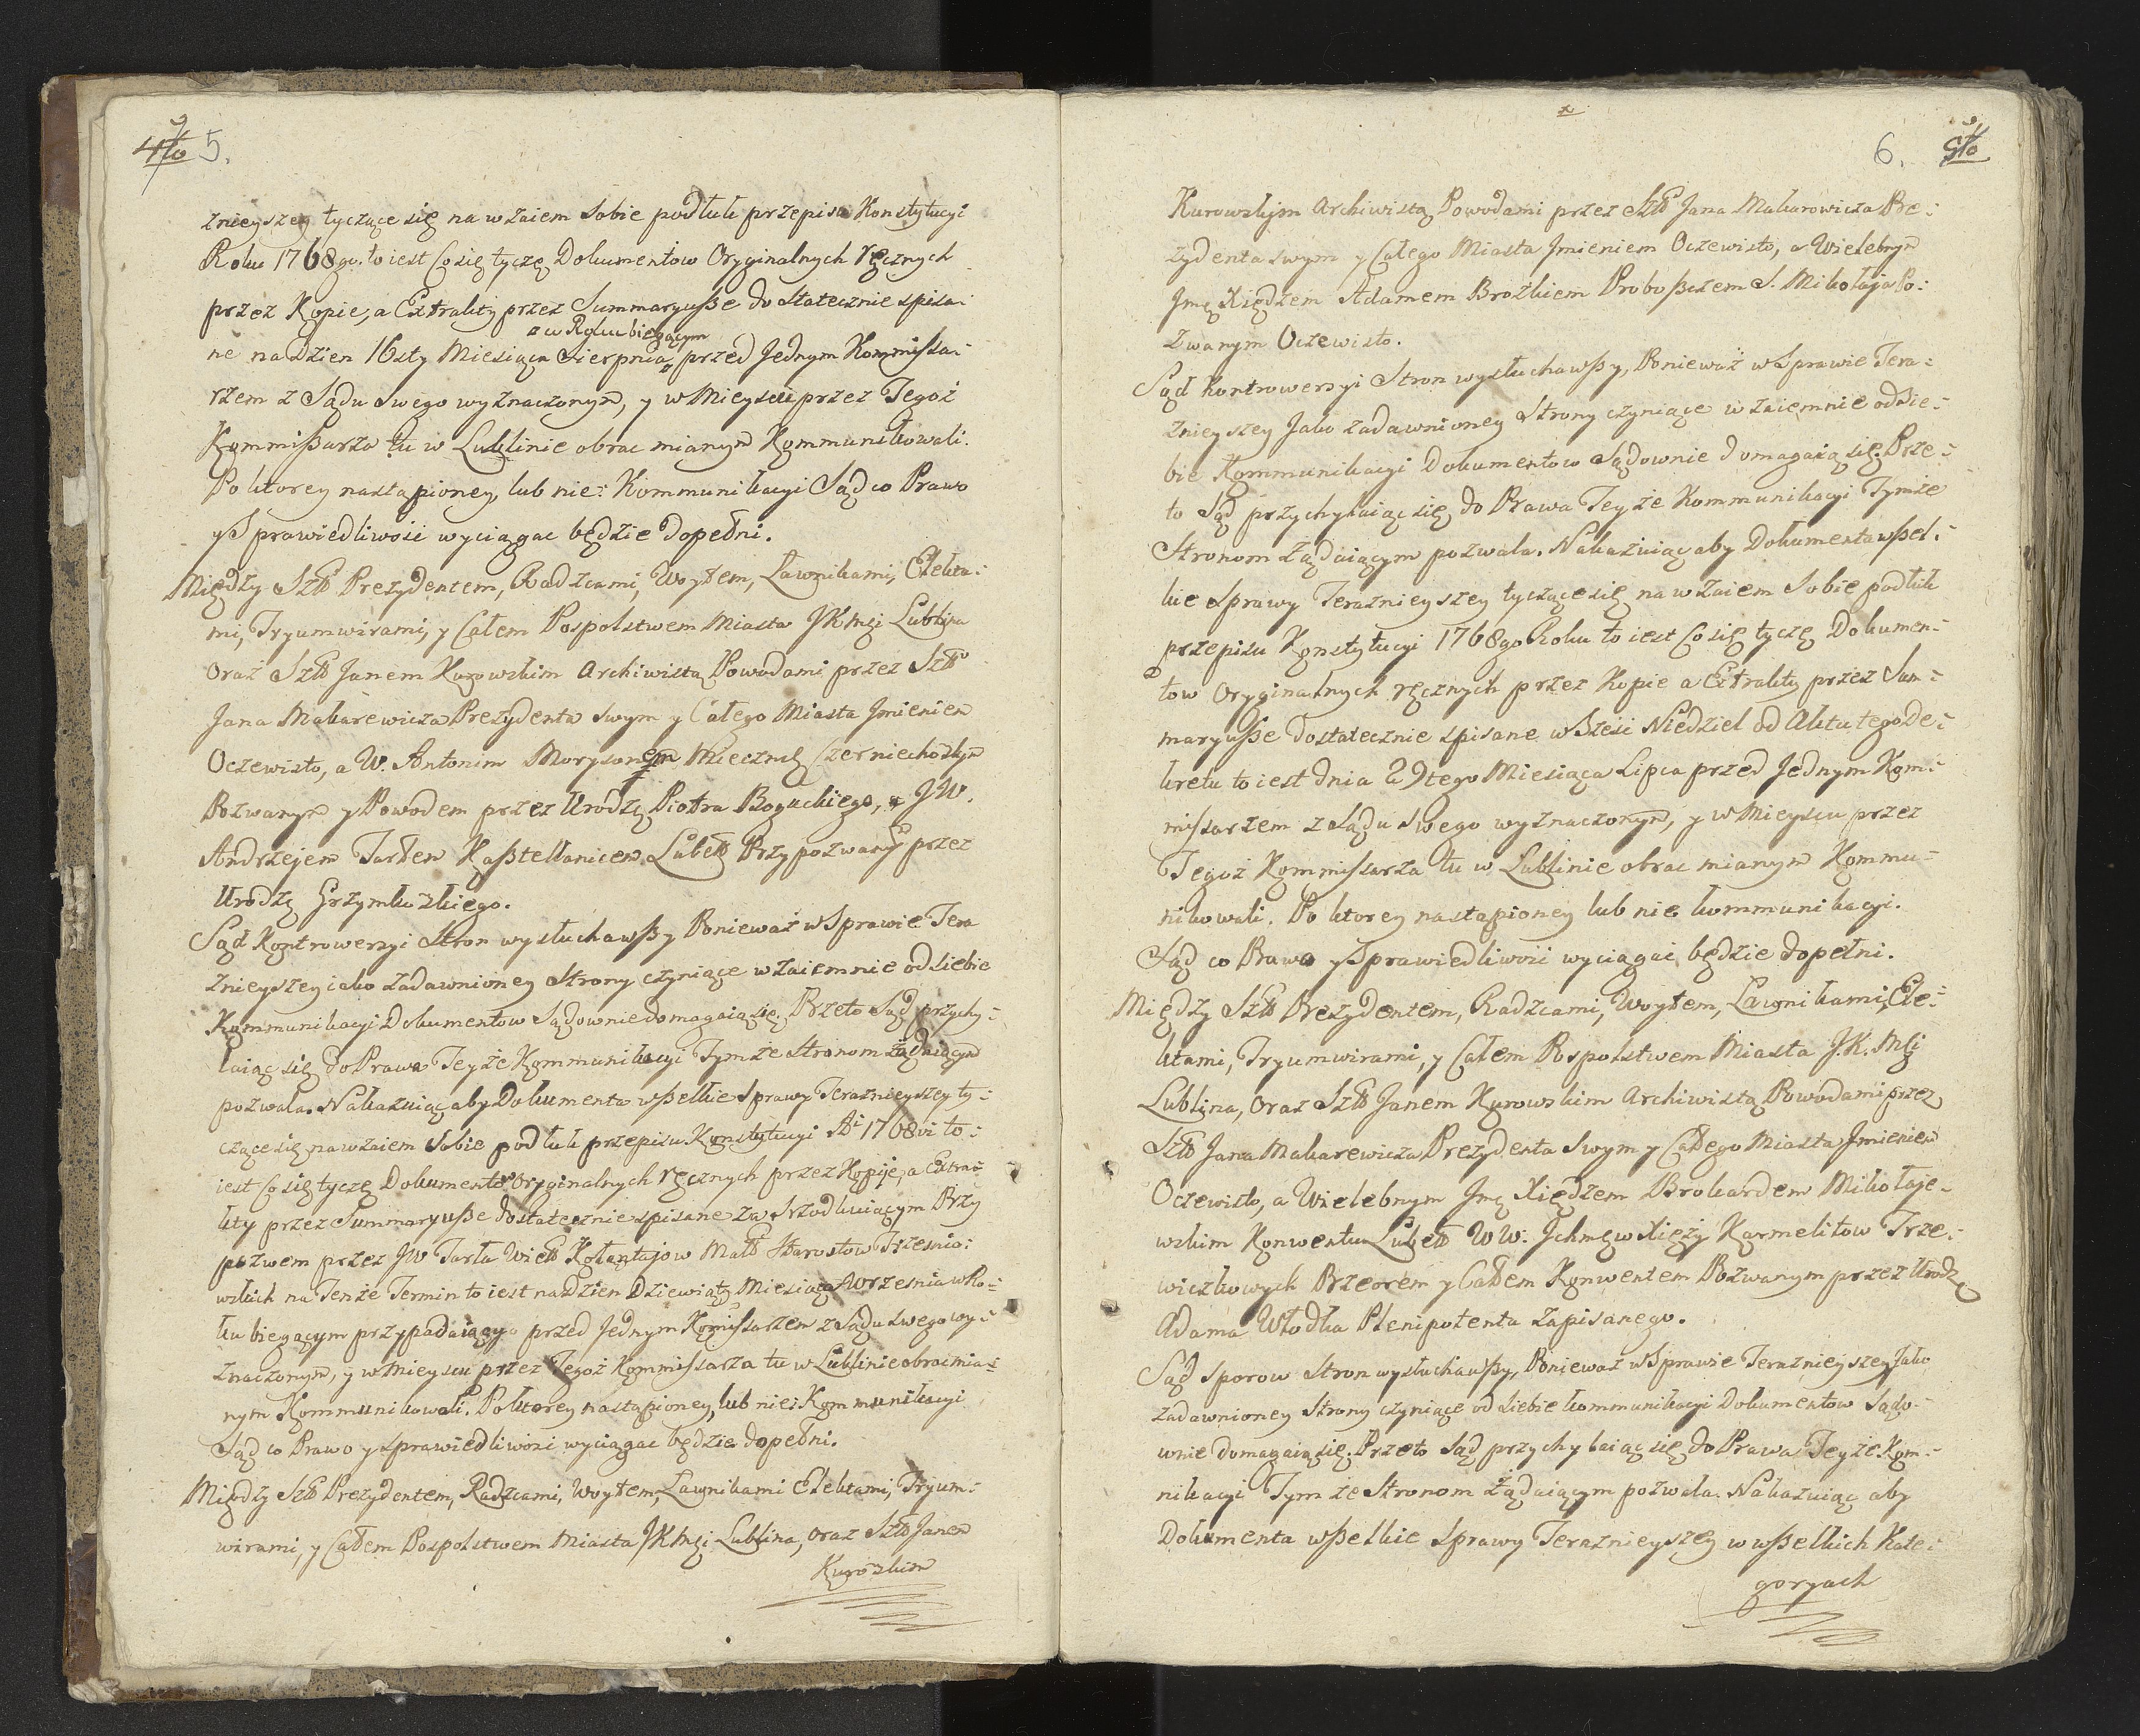 4to 5.
znieyszey tyczące się na wzaiem Sobie podług przepisu Konstytucyi
Roku 1768go. to iest Co się tyczę Dokumentow Oryginalnych ręcznych
przez Kopie, a Extrakty przez Summaryuße do Statecznie spisa:
w Roku bieżącym
ne na Dzien 16sty Miesiąca Sierpnia przed Jednym Kommissa:
rzem z Sądu Swego wyznaczonym, y w Mieyscu przez Tegoż
Kommißarza tu w Lublinie obrac mianym Kommunikowali.
Po ktorey nastąpioney, lub nie: Kommunikacyi Sąd co Prawo
y Sprawiedliwośći wyciągac będzie dopełni.
Między Szł Prezydentem, Radzcami, Woytem, Ławnikami, Elekta:
mi, Tryumwirami, y Całem Pospolstwem Miasta JKMci Lublina
oraz Szł Janem Kurowskim Archiwistą Powodami przez Szł
Jana Makarewicza Prezydenta swym y Całego Miasta Jmieniem
Oczewisto, a W. Antonim Morysonem Miecznik Czerniechoskym
Pozwanym y Powodem przez Urodzę Piotra Boguckiego, JW.
Andrzejem Tarłem Kaßtellanicem Lubel Przypozwanym przez
Urodzę Grzymkoskiego.
Sąd Kontrowersyi Stron wysłuchawßy Ponieważ w Sprawie Tera
znieyszey iako zadawnioney Strony czyniące wzaiemnie od siebie
Kommunikacyi Dokumentow Sądownie domagaią się. Przeto Sąd przychy:
laiąc się do Prawa Teyże Kommunikacyi Tymże Stronom żądaiącym
pozwala. Nakazuiąc aby Dokumenta wßelkie Sprawy Teraznieyszey ty:
czące się nawzaiem Sobie podług przepisu Konstytucyi Ai 1768vi to:
iest Co się tyczę Dokumentow Oryginalnych ręcznych przez Kopije, a Extra:
kty przez Summaryuße dostatecznie spisane za Srzodkuiącym Przy
pozwem przez JW Tarła Wiel Kołantajow Mał Starostow Trzesnio:
wskich na Tenże Termin to iest na Dzien Dziewiąty Miesiąca Wrzesnia w Ro:
ku biegącym przypadaiący przed Jednym Kommissarzem z Sądu swego wy:
znaczonym, y w Mieyscu przez Tegoż Kommissarza tu w Lublinie obrac mia:
nym Kommunikowali. Po ktorey nastąpioney, lub nie: Kommunikacyi
Sąd co Prawo y sprawiedliwosci wyciągac będzie dopełni.
Między Szł Prezydentem, Radzcami, Woytem, Ławnikami Elektami, Tryum:
wirami, y Całem Pospolstwem Miasta JKMci Lublina, oraz Szł Janem
Kuroskim
6. 5to
Kurowskym Archiwistą Powodami przez Szł Jana Makarowicza Pre:
zydenta swym y Całego Miasta Jmieniem Oczewisto, a Wielebnym
Jmę Xiędzem Adamem Brożkiem Proboßczem S. Mikołaja Po:
zwanym Oczewisto.
Sąd Kontrowersyi Stron wysłuchawßy, Ponieważ w Sprawie Tera:
znieyszey Jako zadawnioney Strony czyniące wzaiemnie od sie:
bie Kommunikacyi Dokumentow Sądownie domagaią się. Prze:
to Sąd przychylaiąc się do Prawa Teyże Kommunikacyi Tymże
Stronom Żądaiącym pozwala. Nakazuiąc aby Dokumenta wßel:
kie Sprawy Teraznieyszey tyczące się na wzaiem Sobie podług
przepisu Konstytucyi 1768go Roku to iest Co się tyczę Dokumen:
tow oryginalnych ręcznych przez Kopie a Extrakty przez Sum:
maryuße dostatecznie spisane w Sześć Niedziel od Aktu tego De:
kretu to iest dnia 29tego Miesiąca Lipca przed Jednym Kom:
missarzem z Sądu Swego wyznaczonym, y w Mieyscu przez
Tegoż Kommissarza tu w Lublinie obrac mianym Kommu:
nikowali. Po ktorey nastąpioney lub nie kommunikacyi.
Sąd co Prawo y Sprawiedliwośi wyciągać będzie dopełni.
Między Szł Prezydentem, Radzcami, Woytem, Ławnikami, Ele:
ktami, Tryumwirami, y Całem Pospolstwem Miasta J.K.Mci
Lublina, oraz Szł Janem Kurowskim Archiwistą Powodami przez
Szł Jana Makarewicza Prezydenta Swym y Całego Miasta Jmieniem
Oczewisto, a Wielebnym Jmę Xiędzem Brokardem Mikołaje:
wskim Konwentu Lubel WW: Jchmęw Xięży Karmelitow Trze:
wiczkowych Przeorem y Całem Konwentem Pozwanym przez Urodz
Adama Włodka Plenipotenta zapisanego.
Sąd Sporow Stron wysłuchawßy, Ponieważ w Sprawie Teraznieyszey Jako
zadawnioney Strony czyniące od siebie kommunikacyi Dokumentow Sądo:
wnie domagaią się. Przeto Sąd przychylaiąc się do Prawa Teyże. Kom:
nikacyi Tymże Stronom Żądaiącym pozwala. Nakazuiąc aby
Dokumenta wßelkie Sprawy Teraznieyszey w wßelkich Kate:
goryach